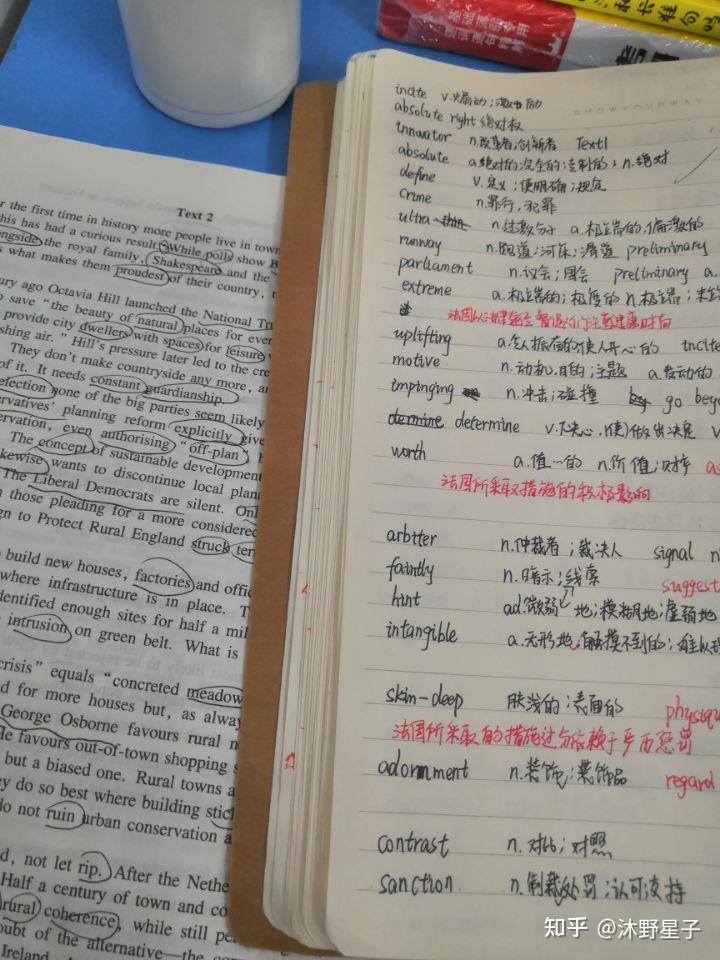 Text 2
r the first time in history more people live in town
his has had a curious result. While polls show B
ongside the royal family, Shakespeare and the
s what makes them proudest of their country, t
ury ago Octavia Hill launched the National Tru
o save "the beauty of natural places for ever
provide city dwellers with spaces for leisure
shing air." Hill's pressure later led to the cre
They don't make countryside any more, a
of it. It needs constant guardianship.
election none of the big parties seem likely
ervatives' planning reform explicitly give
ervation, even authorising "off-plan" b
The concept of sustainable development
kewise wants to discontinue local plann
The Liberal Democrats are silent. Onl
n those pleading for a more considered
gn to Protect Rural England struck terr
build new houses, factories and offic
where infrastructure is in place. T
dentified enough sites for half a mil
intrusion on green belt. What is
crisis" equals "concreted meadow
d for more houses but, as alway
George Osborne favours rural n
le favours out-of-town shopping
but a biased one. Rural towns a
ey do so best where building stic
do not ruin urban conservation a
d, not let rip. After the Nethe
Half a century of town and co
rural coherence, while still pe
oubt of the alternative—the co
Ireland.
incite v.煽动;激励
absolute right 绝对权
innovator n.改革者;创新者 Text1
absolute a.绝对的;完全的;专制的;n.绝对
define v.定义;使明确;规定
crime n.罪行,犯罪
ultra thin n.过激分子 a.极端的,偏激的
runway n.跑道;河床;滑道 preliminary
parliament n.议会;国会 preliminary a.
extreme a.极端的;极度的 n.极端;
uplifting a.令人振奋的;使人开心的 incite
motive n.动机,目的;主题 a.发动的
impinging n.冲击;碰撞 go beyo
determine determine v.下决心,(使)做出决定 v
worth a.值…的 n.价值;财产
法国所采取措施的积极影响
arbiter n.仲裁者;裁决人 signal n
faintly n.暗示;线索 suggest
hint ad.微弱地;模糊地;虚弱地
intangible a.无形地,触摸不到的;难以
skin-deep 肤浅的;表面的 physiqu
法国所采取的措施过分依赖于严厉惩罚
adornment n.装饰;装饰品 regard
contrast n.对比;对照
sanction n.制裁,处罚;认可,支持
知乎 @沐野星子